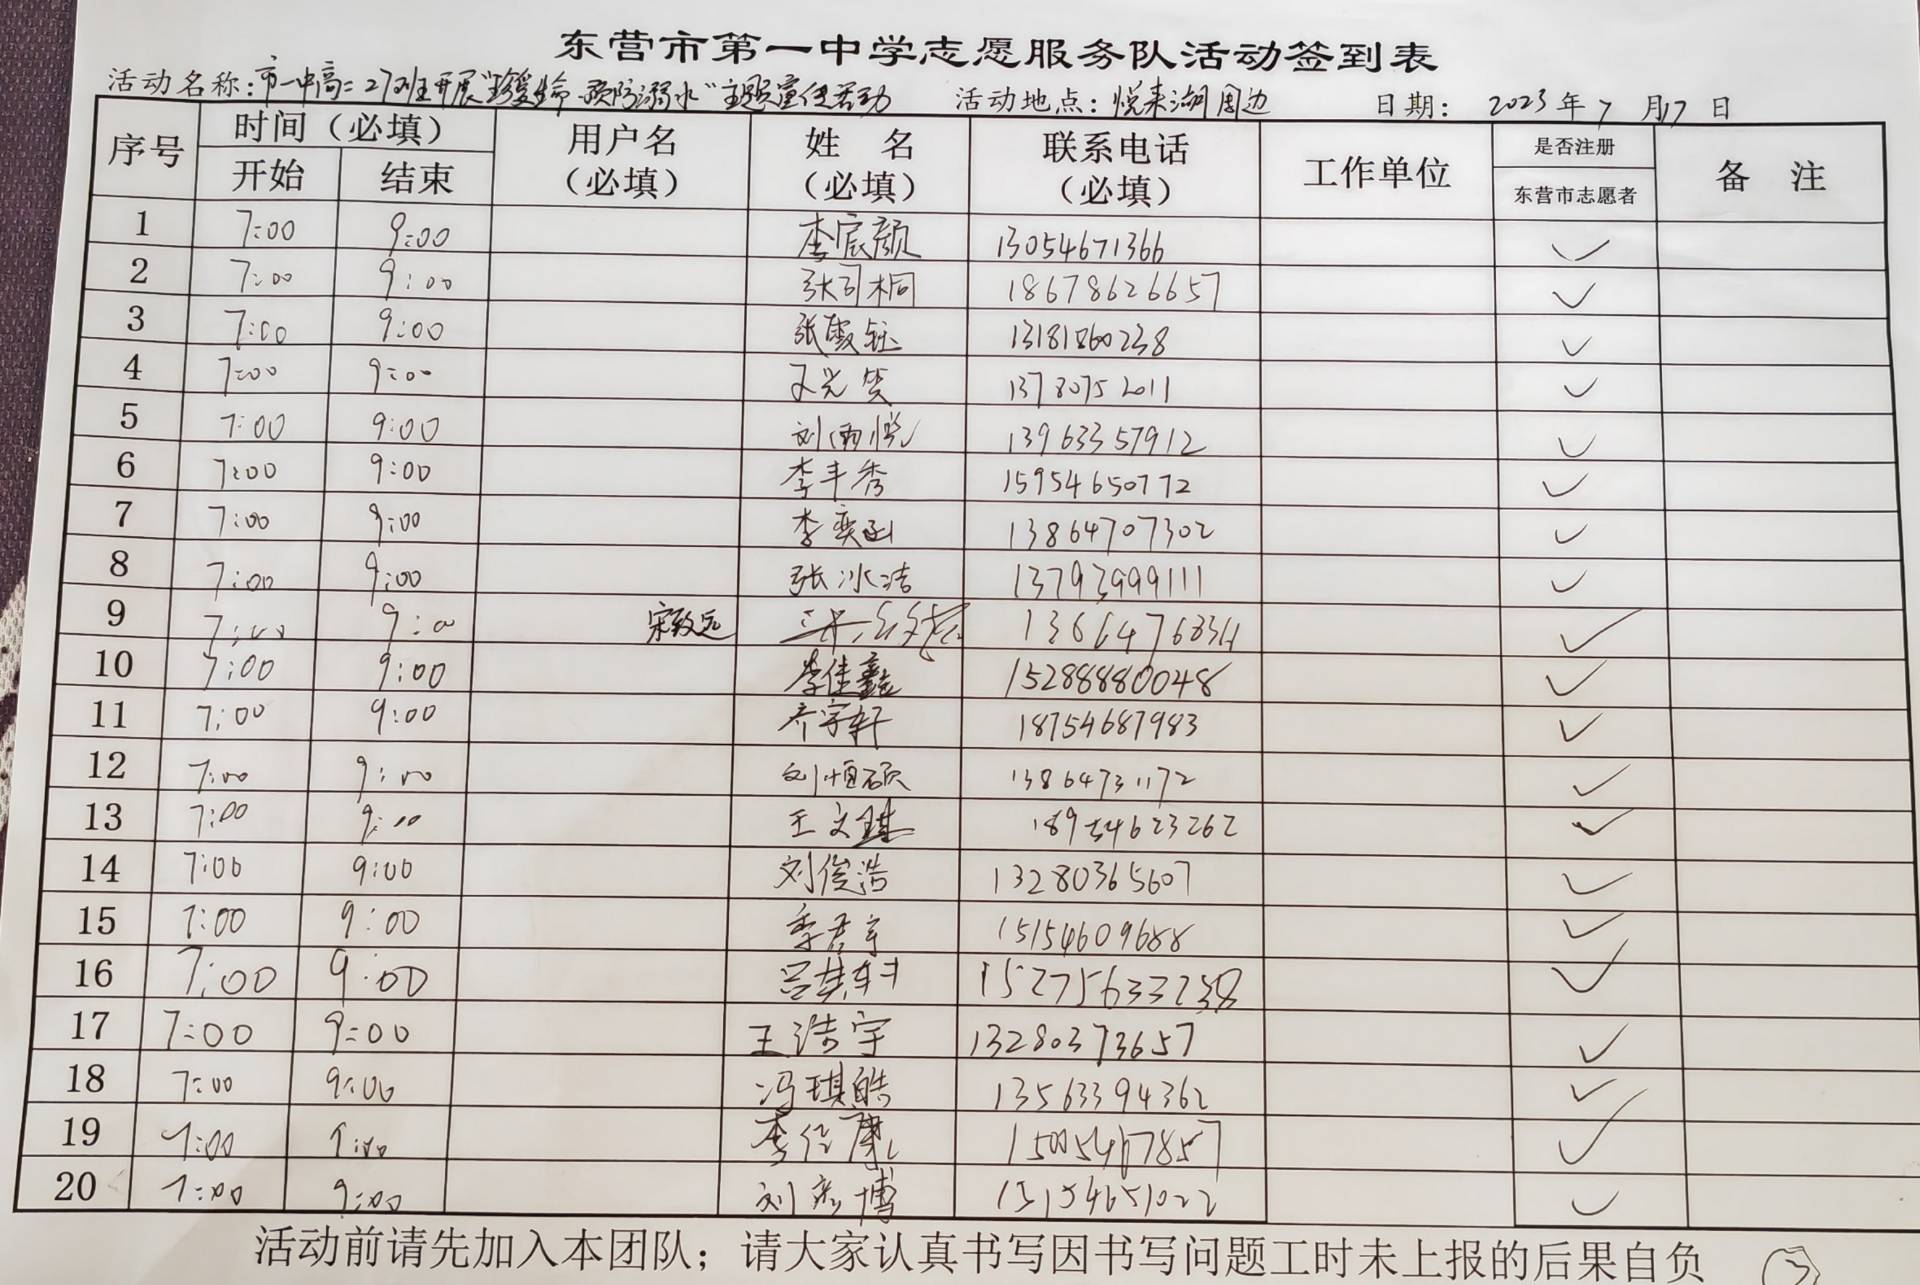 东营市第一中学志愿服务队活动签到表
活动名称:市一中高二27班开展"珍爱生命 预防溺水"主题宣传活动 活动地点:悦来湖周边 日期: 2023年7月17日
序号 时间(必填) 用户名(必填) 姓名(必填) 联系电话(必填) 工作单位 是否注册 备注
开始 结束 东营市志愿者
1 7:00 9:00 李宸颜 13054671366 ✓
2 7:00 9:00 张可桐 18678626657 ✓
3 7:00 9:00 张霞钰 13181860238 ✓
4 7:00 9:00 13780752011 ✓
5 7:00 9:00 刘雨悦 13963357912 ✓
6 7:00 9:00 李丰秀 15954650772 ✓
7 7:00 9:00 李奕函 13864707302 ✓
8 7:00 9:00 张冰洁 13793999111 ✓
9 7:00 9:00 宋致远 ✓
10 7:00 9:00 李佳鑫 15288880048 ✓
11 7:00 9:00 齐宇轩 18754687983 ✓
12 7:00 9:00 刘恒硕 13864731172 ✓
13 7:00 9:00 王文琪 18954623262 ✓
14 7:00 9:00 刘俊浩 13280365607 ✓
15 7:00 9:00 季君宇 15154609688 ✓
16 7:00 9:00 吕其轩 15275633238 ✓
17 7:00 9:00 王浩宇 13280373657 ✓
18 7:00 9:00 冯琪皓 13563394362 ✓
19 7:00 9:00 15005467857 ✓
20 7:00 9:00 刘彦博 15154651022 ✓
活动前请先加入本团队;请大家认真书写因书写问题工时未上报的后果自负